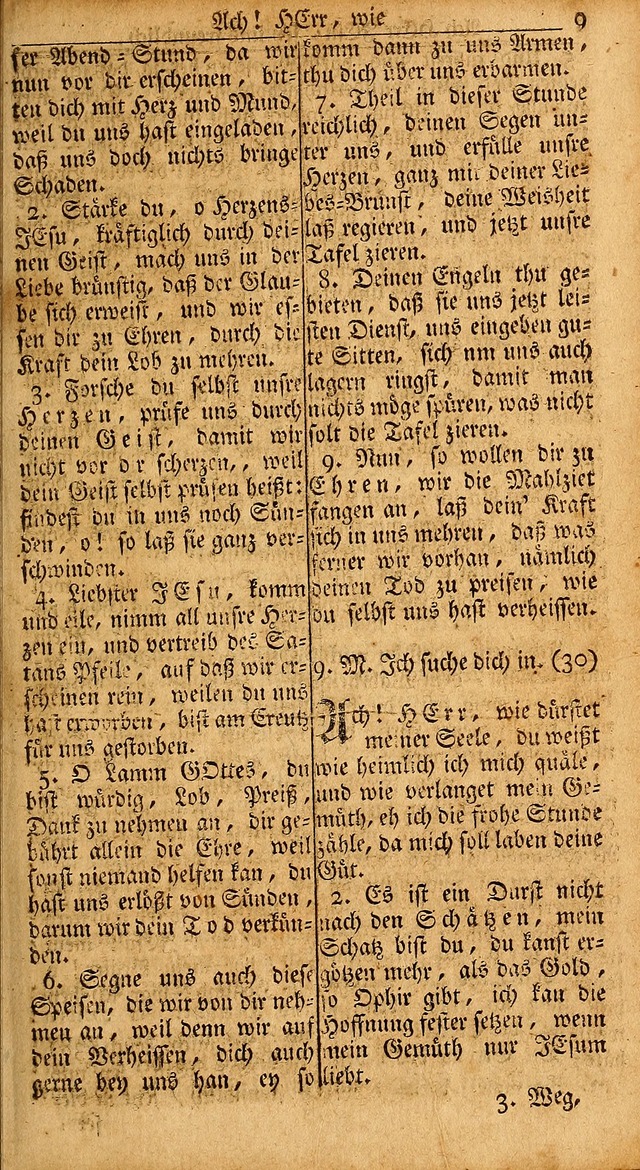 Ach! HErr, wie 9
ser Abend=Stund, da wir
nun vor dir erscheinen, bit=
ten dich mit Herz und Mund,
weil du uns hast eingeladen,
daß uns doch nichts bringe
Schaden.
2. Stärke du, o Herzens=
JEsu, kräftiglich durch dei=
nen Geist, mach uns in der
Liebe brünstig, daß der Glau=
be sich erweist, und wir es=
sen dir zu Ehren, durch die
Kraft dein Lob zu mehren.
3. Forsche du selbst unsre
Herzen, prüfe uns durch
deinen Geist, damit wir
nicht vor d r scherzen,, weil
dein Geist selbst prüfen heißt:
findest du in uns noch Sün=
den, o! so laß sie ganz ver=
schwinden.
4. Liebster JEsu, komm
und eile, nimm all unsre Her=
zen ein, und vertreib des Sa=
tans Pfeile, auf daß wir er=
scheinen rein, weilen du uns
hast erworben, bist am Creutz
für uns gestorben.
5. O Lamm GOttes, du
bist würdig, Lob, Preiß,
Dank zu nehmen an, dir ge=
bührt allein die Ehre, weil
sonst niemand helfen kan, du
hast uns erlößt von Sünden,
darum wir dein Tod verkün=
den.
6. Segne uns auch diese
Speisen, die wir von dir neh=
men an, weil denn wir auf
dein Verheissen, dich auch
gerne bey uns han, ey so
komm dann zu uns Armen,
thu dich über uns erbarmen.
7. Theil in dieser Stunde
reichlich, deinen Segen un=
ter uns, und erfülle unsre
Herzen, ganz mit deiner Lie=
bes=Brunst, deine Weisheit
laß regieren, und jetzt unsre
Tafel zieren.
8. Deinen Engeln thu ge=
bieten, daß sie uns jetzt lei=
sten Dienst, uns eingeben gu=
te Sitten, sich um uns auch
lagern ringst, damit man
nichts möge spüren, was nicht
solt die Tafel zieren.
9. Nun, so wollen dir zu
Ehren, wir die Mahlziet
fangen an, laß dein' Kraft
sich in uns mehren, daß was
ferner wir vorhan, nämlich
deinen Tod zu preisen, wie
du selbst uns hast verheissen.
9. M. Ich suche dich in. (30)
Ach! HErr, wie dürstet
meiner Seele, du weißt
wie heimlich ich mich quäle,
und wie verlanget mein Ge=
müth, eh ich die frohe Stunde
zähle, da mich soll laben deine
Güt.
2. Es ist ein Durst nicht
nach den Schätzen, mein
Schatz bist du, du kanst er=
götzen mehr, als das Gold,
so Ophir gibt, ich kan die
Hoffnung fester setzen, wenn
mein Gemüth nur JEsum
liebt.
3. Weg,